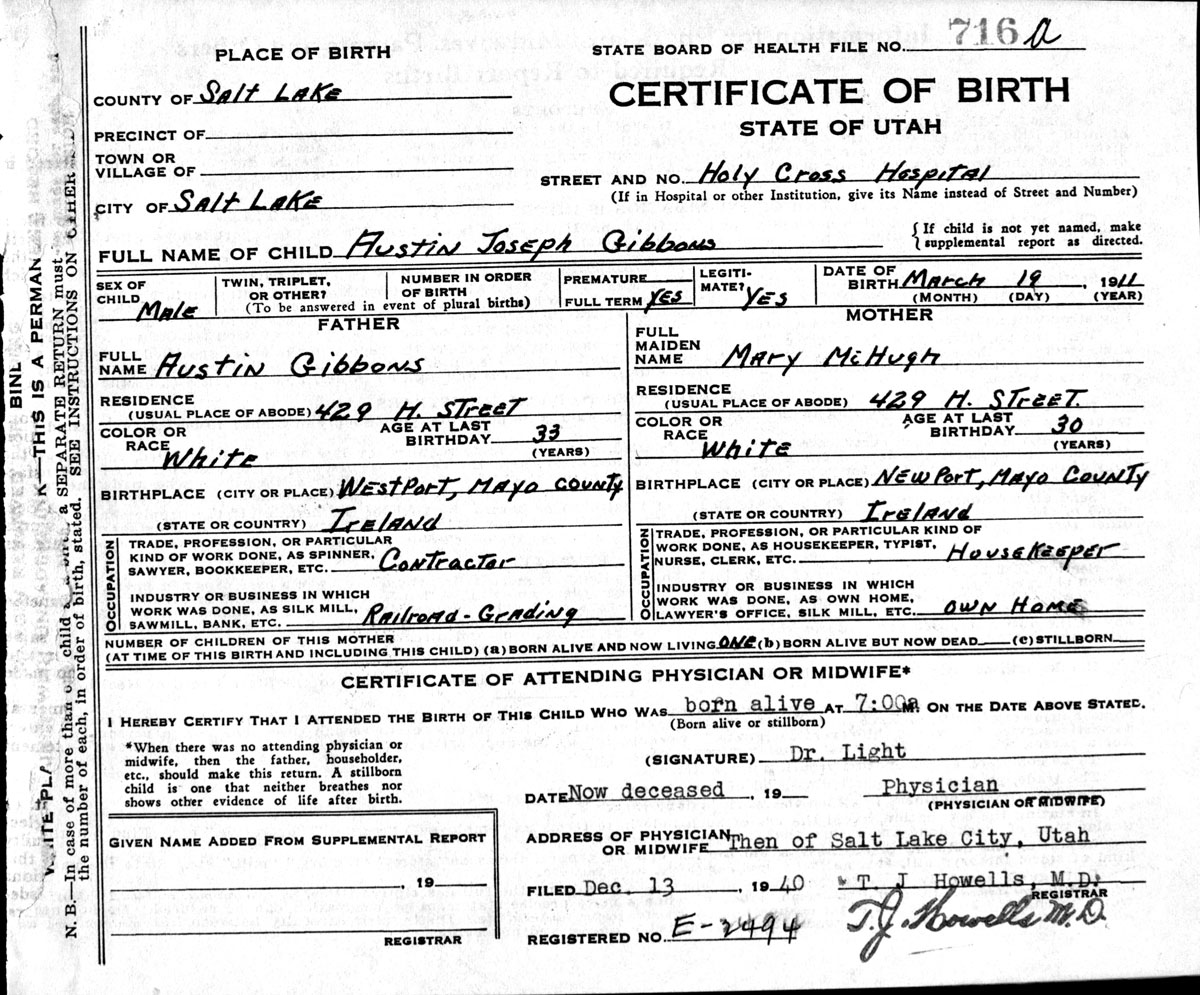 716 a
PLACE OF BIRTH
STATE BOARD OF HEALTH FILE NO.
COUNTY OF Salt Lake
CERTIFICATE OF BIRTH
PRECINCT OF
STATE OF UTAH
TOWN OR
VILLAGE OF
STREET AND NO. Holy Cross Hospital
(If in Hospital or other Institution, give its Name instead of Street and Number)
CITY OF Salt Lake
FULL NAME OF CHILD Austin Joseph Gibbons
{ If child is not yet named, make
supplemental report as directed.
SEX OF
CHILD Male
TWIN, TRIPLET,
OR OTHER?
NUMBER IN ORDER
OF BIRTH
(To be answered in event of plural births)
PREMATURE
FULL TERM Yes
LEGITI-
MATE? Yes
DATE OF
BIRTH March 19, 1911
(MONTH) (DAY) (YEAR)
FATHER
FULL
NAME Austin Gibbons
RESIDENCE
(USUAL PLACE OF ABODE) 429 H. Street
COLOR OR
RACE White
AGE AT LAST
BIRTHDAY 33
(YEARS)
BIRTHPLACE (CITY OR PLACE) Westport, Mayo County
(STATE OR COUNTRY) Ireland
OCCUPATION
TRADE, PROFESSION, OR PARTICULAR
KIND OF WORK DONE, AS SPINNER,
SAWYER, BOOKKEEPER, ETC. Contractor
INDUSTRY OR BUSINESS IN WHICH
WORK WAS DONE, AS SILK MILL,
SAWMILL, BANK, ETC. Railroad - Grading
MOTHER
FULL
MAIDEN
NAME Mary McHugh
RESIDENCE
(USUAL PLACE OF ABODE) 429 H. Street.
COLOR OR
RACE White
AGE AT LAST
BIRTHDAY 30
(YEARS)
BIRTHPLACE (CITY OR PLACE) Newport, Mayo County
(STATE OR COUNTRY) Ireland
OCCUPATION
TRADE, PROFESSION, OR PARTICULAR KIND OF
WORK DONE, AS HOUSEKEEPER, TYPIST,
NURSE, CLERK, ETC. Housekeeper
INDUSTRY OR BUSINESS IN WHICH
WORK WAS DONE, AS OWN HOME,
LAWYER'S OFFICE, SILK MILL, ETC. Own Home
NUMBER OF CHILDREN OF THIS MOTHER
(AT TIME OF THIS BIRTH AND INCLUDING THIS CHILD) (a) BORN ALIVE AND NOW LIVING One (b) BORN ALIVE BUT NOW DEAD (c) STILLBORN
CERTIFICATE OF ATTENDING PHYSICIAN OR MIDWIFE*
I HEREBY CERTIFY THAT I ATTENDED THE BIRTH OF THIS CHILD WHO WAS born alive AT 7:00a M. ON THE DATE ABOVE STATED.
(Born alive or stillborn)
*When there was no attending physician or
midwife, then the father, householder,
etc., should make this return. A stillborn
child is one that neither breathes nor
shows other evidence of life after birth.
(SIGNATURE) Dr. Light
DATE Now deceased, 19 Physician
(PHYSICIAN OR MIDWIFE)
GIVEN NAME ADDED FROM SUPPLEMENTAL REPORT
, 19
REGISTRAR
ADDRESS OF PHYSICIAN
OR MIDWIFE Then of Salt Lake City, Utah
FILED Dec. 13, 1940 T. J Howells, M.D.
REGISTRAR
REGISTERED NO. E-2494 T. J. Howells M.D.
WRITE PLA
K—THIS IS A PERMAN
BINL
N. B. In case of more than child a a SEPARATE RETURN must
the number of each, in order of birth, stated. SEE INSTRUCTIONS ON